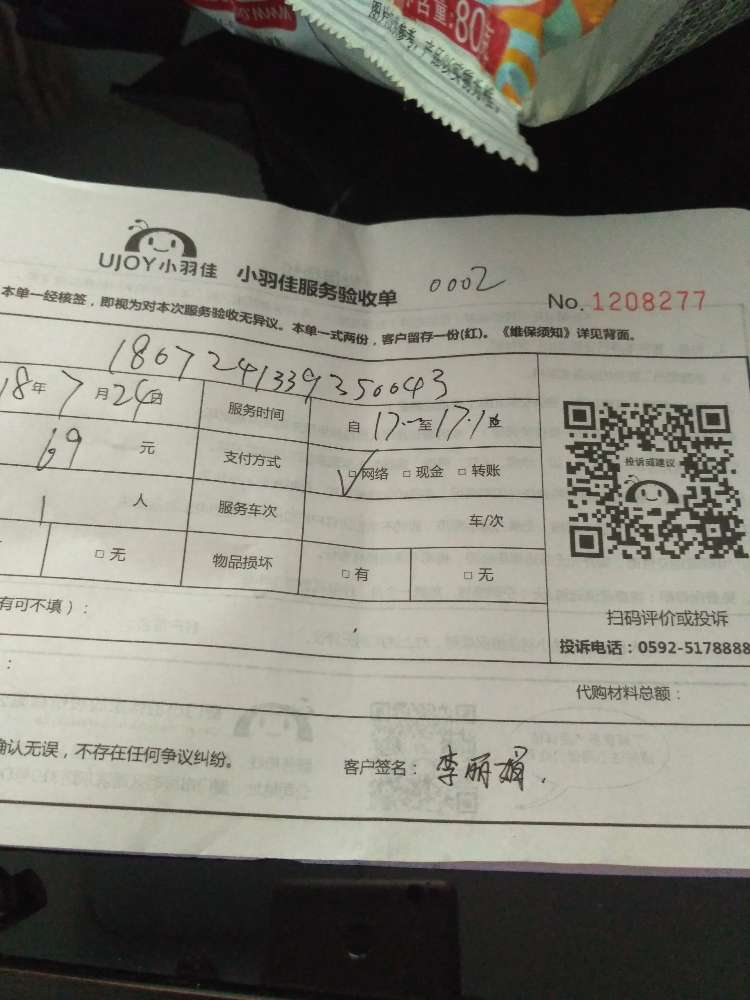 80克
图片仅供参考，产品以实物为准。
UJOY小羽佳 小羽佳服务验收单 0002
No. 1208277
本单一经核签，即视为对本次服务验收无异议。本单一式两份，客户留存一份(红)。《维保须知》详见背面。
18年7月24日 服务时间 自17 至17.1
69 元 支付方式 ☑网络 □现金 □转账
投诉或建议
1 人 服务车次 车/次
□无 物品损坏 □有 □无
有可不填）：
扫码评价或投诉
投诉电话：0592-5178888
：
代购材料总额：
确认无误，不存在任何争议纠纷。
客户签名：李丽娟.